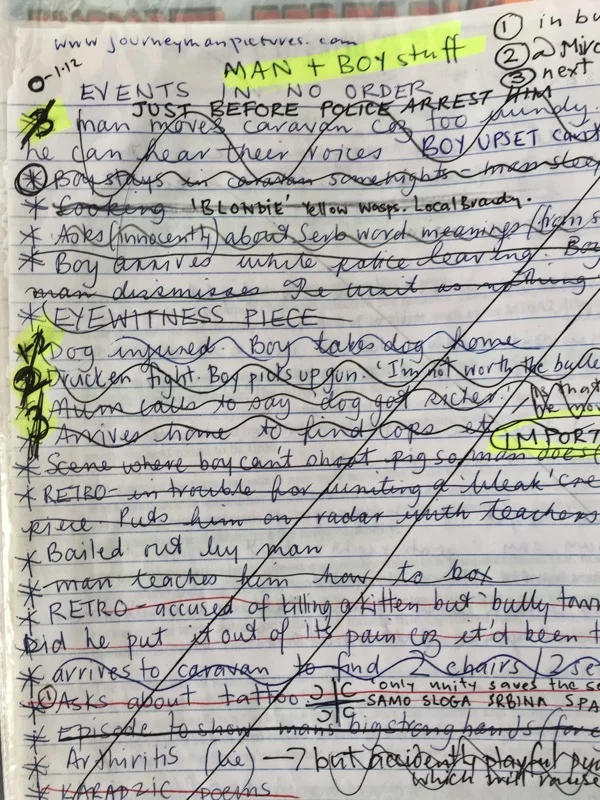 www.journeymanpictures.com
① in bu
② @ Mirc
③ next
0-1-12
MAN + BOY stuff
EVENTS IN NO ORDER
JUST BEFORE POLICE ARREST HIM
man moves caravan coz too windy.
he can hear their voices BOY UPSET can't
* Boy stays in caravan some nights - man sleep
* Looking 'BLONDIE' Yellow Wasps. Local Brandy.
* Asks (innocently) about Serb word meanings (from s
* Boy arrives while police leaving. Boy
man dismisses the visit as nothing
* EYEWITNESS PIECE
Dog injured. Boy takes dog home
2 Drucken fight. Boy picks up gun. 'I'm not worth the bulle
Mum calls to say 'dog got sicker.' Is that
3 Arrives home to find cops etc
IMPORT
* Scene where boy can't shoot pig so man does
* RETRO - in trouble for writing a 'bleak' cre
piece. Puts him on radar with teachers
* Bailed out by man
* man teaches him how to box
* RETRO - accused of killing a kitten but bully tow
Did he put it out of its pain coz it'd been t
* arrives to caravan to find 2 chairs / 2 se
* ① Asks about tattoo Ɔ|C 'only unity saves the se
Ɔ|C - SAMO SLOGA SRBINA SPA
* Episode to show man's big strong hands (for c
* Arthiritis (he) → but accidently playful pun
which will cause
* KARADZIC poems